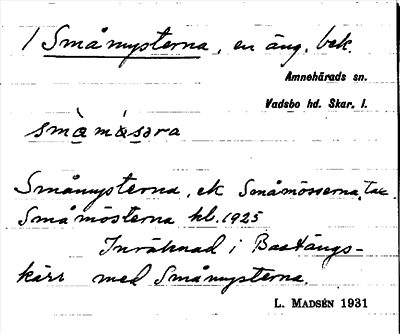 / Småmysterna, en äng. bek.
Amnehärads sn.
Vadsbo hd. Skar. l.
småmåsəra
Småmysterna, ek Småmösserna,
Småmösterna kl. 1925
Inräknad i Bastängs-
kärr med Småmysterna.
L. MADSÉN 1931